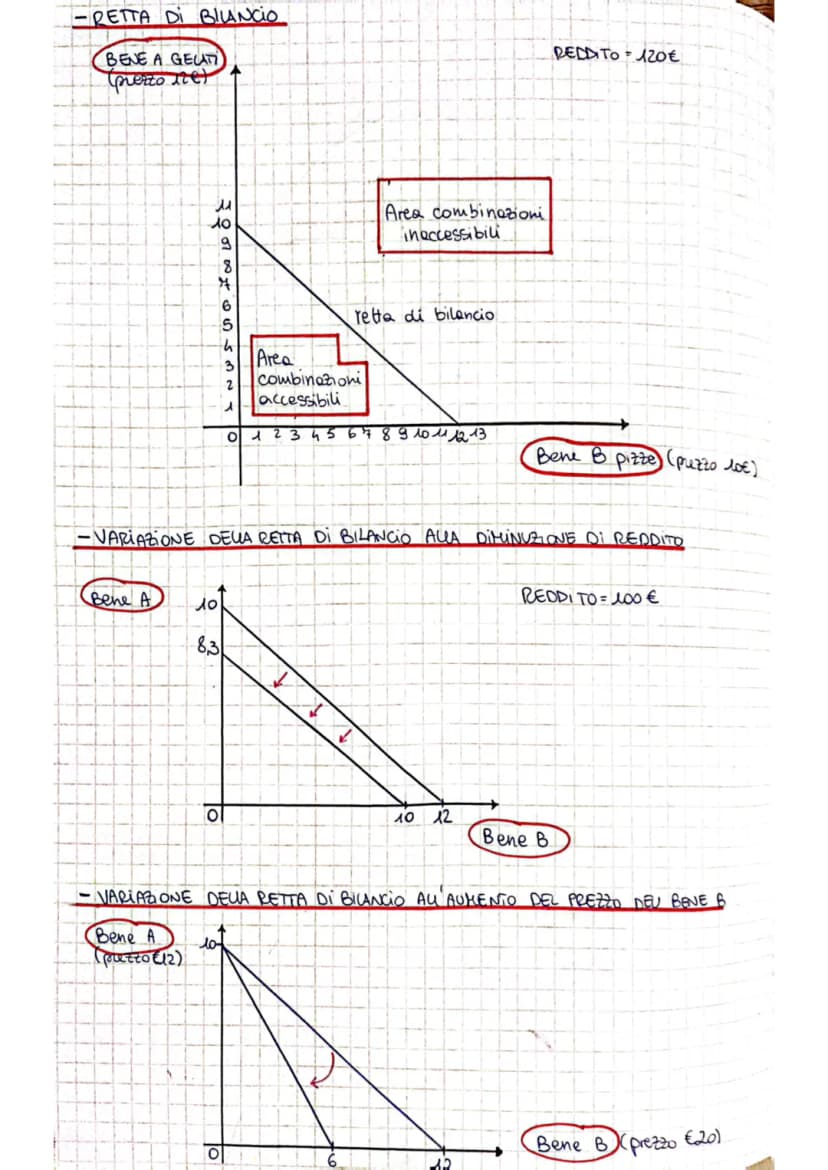 - RETTA DI BILANCIO
BENE A GELATI
(prezzo 12€)
REDDITO = 120€
11
10
9
8
7
6
5
4
3
2
1
Area combinazioni
inaccessibili
retta di bilancio
Area
combinazioni
accessibili
0 1 2 3 4 5 6 7 8 9 10 11 12 13
Bene B pizze (prezzo 10€)
- VARIAZIONE DELLA RETTA DI BILANCIO ALLA DIMINUZIONE DI REDDITO
Bene A
REDDITO = 100 €
10
8,3
0 10 12
Bene B
- VARIAZIONE DELLA RETTA DI BILANCIO ALL'AUMENTO DEL PREZZO DEL BENE B
Bene A
(prezzo €12)
10
Bene B (prezzo €20)
0 6 12